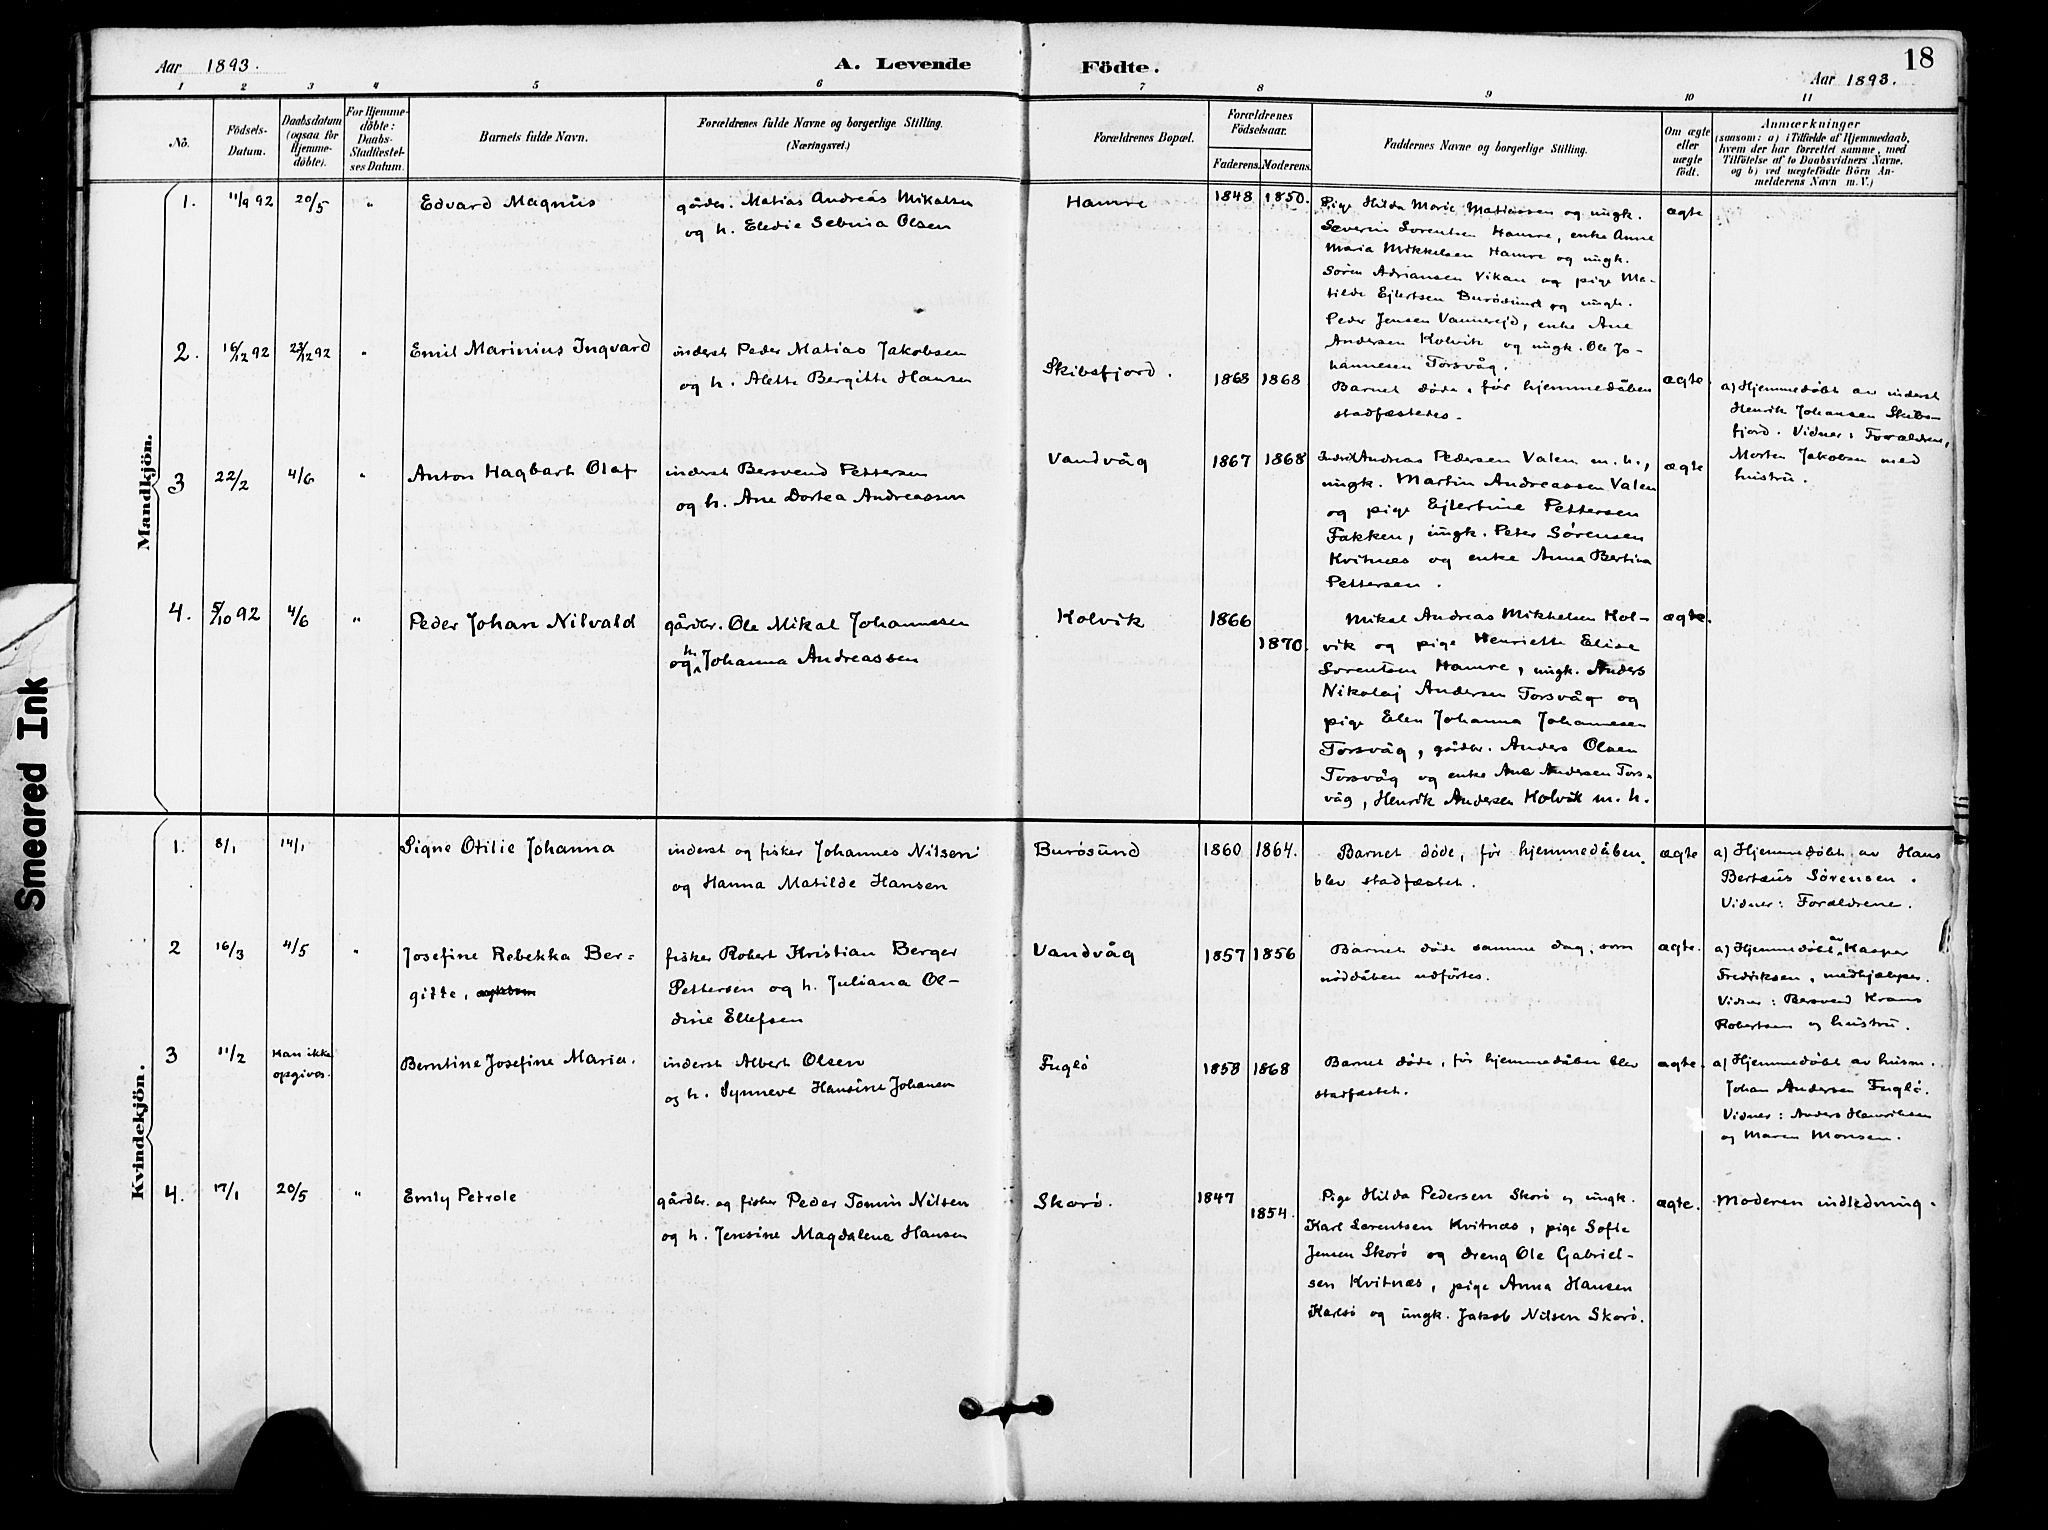 18
Aar 1893.
A. Levende
Födte.
Aar 1893.
1 2 3 4 5 6 7 8 9 10 11
No.
Födsels-
Datum.
Daabsdatum
(ogsaa for
Hjemme-
döbte).
For Hjemme-
döbte:
Daabs-
Stadfæstel-
ses Datum.
Barnets fulde Navn.
Forældrenes fulde Navne og borgerlige Stilling.
(Næringsvei.)
Forældrenes Bopæl.
Forældrenes
Födselsaar.
Faderens. Moderens.
Faddernes Navne og borgerlige Stilling.
Om ægte
eller
uægte
födt.
Anmærkninger
(saasom: a) i Tilfælde af Hjemmedaab,
hvem der har forrettet samme, med
Tilföielse af to Daabsvidners Navne,
og b) ved uægtefödte Börn An-
melderens Navn m. V.)
Mandkjön.
1. 11/9 92 20/5 " Edvard Magnus
gårdbr. Matias Andreas Mikalsen
og h. Eledie Sebina Olsen
Hamre 1848 1850.
Pige Hilda Marie Matiassen og ungk.
Severin Sorentsen Hamre, enke Anne
Maria Mikkelsen Hamre og ungk.
Sören Adriansen Vikan og pige Ma-
tilde Ejlertsen Burösund og ungk.
Peder Jensen Vannerejd, enke Ane
Andersen Kolvik og ungk. Ole Jo-
hannesen Torsvåg.
ægte
2. 16/12 92 23/12 92 " Emil Marinius Ingvard
inderst Peder Matias Jakobsen
og h. Alette Bergitte Hansen
Skibsfjord. 1868 1868
Barnet döde, för hjemmedåben
stadfæstedes.
ægte.
a) Hjemmedöbt av inderst
Henrik Johansen Skibs-
fjord. Vidner: Forældrene,
Morten Jakobsen med
hustru.
3 22/2 4/6 " Anton Hagbart Olaf
inderst Bersvend Pettersen
og h. Ane Dortea Andreassen
Vandvåg 1867 1868
Andreas Pedersen Valen m. h.,
ungk. Martin Andreassen Valen
og pige Ejlertine Pettersen
Fakken, ungk. Peter Sørensen
Kvitnæs og enke Anna Bertina
Pettersen.
ægte
4. 5/10 92 4/6 " Peder Johan Nilvald
gårdbr. Ole Mikal Johannesen
og h. Johanna Andreassen
Kolvik 1866 1870.
Mikal Andreas Mikkelsen Kol-
vik og pige Henriette Elise
Sorentsen Hamre, ungk. Anders
Nikolaj Andersen Torsvåg og
pige Elen Johanna Johannesen
Torsvåg, gårdbr. Anders Olsen
Torsvåg og enke Ane Andersen Tors-
våg, Henrik Andersen Kolvik m. h.
ægte.
Kvindekjön.
1. 8/1 14/1 Signe Otilie Johanna
inderst og fisker Johannes Nilsen
og Hanna Matilde Hansen
Burösund 1860 1864.
Barnet döde, för hjemmedåben
blev stadfæstet.
ægte
a) Hjemmedöbt av Hans
Bertæus Sørensen.
Vidner: Forældrene.
2 16/3 4/5 " Josefine Rebekka Ber-
gitte,
fisker Robert Kristian Berger
Pettersen og h. Juliana Ol-
dine Ellefsen
Vandvåg 1857 1856
Barnet döde samme dag, som
nöddåben udförtes.
ægte.
a) Hjemmedöbt av Kasper
Fredriksen, medhjælper.
Vidner: Bersvend Krans
Robertsen og hustru.
3 11/2 Kan ikke
opgives. Berntine Josefine Maria.
inderst Albert Olsen
og h. Synneve Hansine Johansen
Fuglö 1858 1868
Barnet döde, för hjemmedåben blev
stadfæstet.
ægte.
a) Hjemmedöbt av husm.
Johan Andersen Fuglö.
Vidner: Anders Henriksen
og Maren Monsen.
4. 17/1 20/5 " Emly Petrole
gårdbr. og fisker Peder Tomin Nilsen
og h. Jensine Magdalena Hansen
Skorö. 1847 1854.
Pige Hilda Pedersen Skorö og ungk.
Karl Lorentsen Kvitnæs, pige Sofie
Jensen Skorö og dreng Ole Gabriel-
sen Kvitnæs, pige Anna Hansen
Karlsö og ungk. Jakob Nilsen Skorö.
ægte.
Moderen indledning.
Smeared Ink